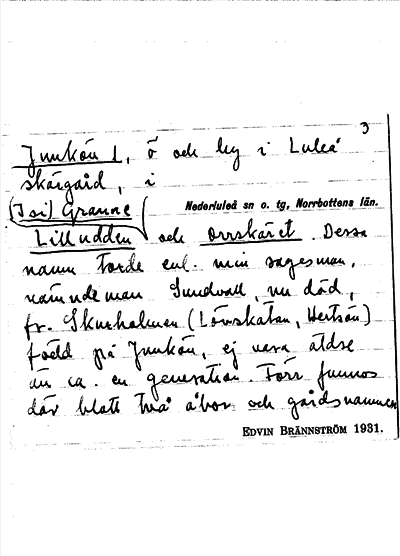 3
Junkön 1, ö och by i Luleå
skärgård, i
(J si) Granne
Nederluleå sn o. tg, Norrbottens län.
Lilludden och Orrskäret. Dessa
namn torde enl. min sagesman,
nämndeman Sundvall, nu död,
fr. Skurholmen (Lövskatan, Hertsön)
född på Junkön, ej vara äldre
än ca. en generation. Förr funnos
där blott två åbor och gårdsnamnen
EDVIN BRÄNNSTRÖM 1931.